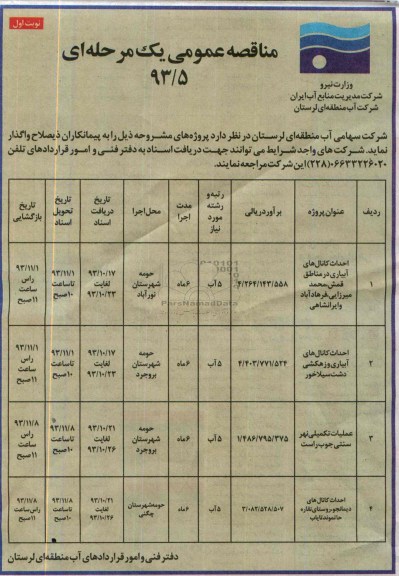 نوبت اول
مناقصه عمومی یک مرحله‌ای
۹۳/۵
وزارت نیرو
شرکت مدیریت منابع آب ایران
شرکت آب منطقه‌ای لرستان
شرکت سهامی آب منطقه‌ای لرستان در نظر دارد پروژه‌های مشروحه ذیل را به پیمانکاران ذیصلاح واگذار
نماید. شرکت های واجد شرایط می توانند جهت دریافت اسناد به دفتر فنی و امور قراردادهای تلفن
۰۶۶۳۳۲۲۶۰۲۰(۲۲۸) این شرکت مراجعه نمایند.
ردیف عنوان پروژه برآورد ریالی رتبه و رشته مورد نیاز مدت اجرا محل اجرا تاریخ دریافت اسناد تاریخ تحویل اسناد تاریخ بازگشایی
۱ احداث کانال‌های آبیاری در مناطق قمش محمد میرزایی، فرهادآباد و ایرانشاهی ۴/۲۶۴/۱۴۳/۵۵۸ ۵ آب ۶ ماه حومه شهرستان نورآباد ۹۳/۱۰/۱۷ لغایت ۹۳/۱۰/۲۳ ۹۳/۱۱/۱ تا ساعت ۱۰ صبح ۹۳/۱۱/۱ راس ساعت ۱۱ صبح
۲ احداث کانال‌های آبیاری و زهکشی دشت سیلاخور ۴/۴۰۳/۷۷۱/۵۲۴ ۵ آب ۶ ماه حومه شهرستان بروجرد ۹۳/۱۰/۱۷ لغایت ۹۳/۱۰/۲۳ ۹۳/۱۱/۱ تا ساعت ۱۰ صبح ۹۳/۱۱/۱ راس ساعت ۱۱ صبح
۳ عملیات تکمیلی نهر سنتی چوب راست ۱/۴۸۶/۷۹۵/۳۷۵ ۵ آب ۶ ماه حومه شهرستان بروجرد ۹۳/۱۰/۲۱ لغایت ۹۳/۱۰/۲۶ ۹۳/۱۱/۸ تا ساعت ۱۰ صبح ۹۳/۱۱/۸ راس ساعت ۱۱ صبح
۴ احداث کانال‌های روستای نقاره ۲/۰۸۲/۵۲۸/۵۰۷ ۵ آب ۶ ماه حومه شهرستان چگنی ۹۳/۱۰/۲۱ لغایت ۹۳/۱۰/۲۶ ۹۳/۱۱/۸ تا ساعت ۱۰ صبح ۹۳/۱۱/۸ راس ساعت ۱۱ صبح
دفتر فنی و امور قراردادهای آب منطقه‌ای لرستان